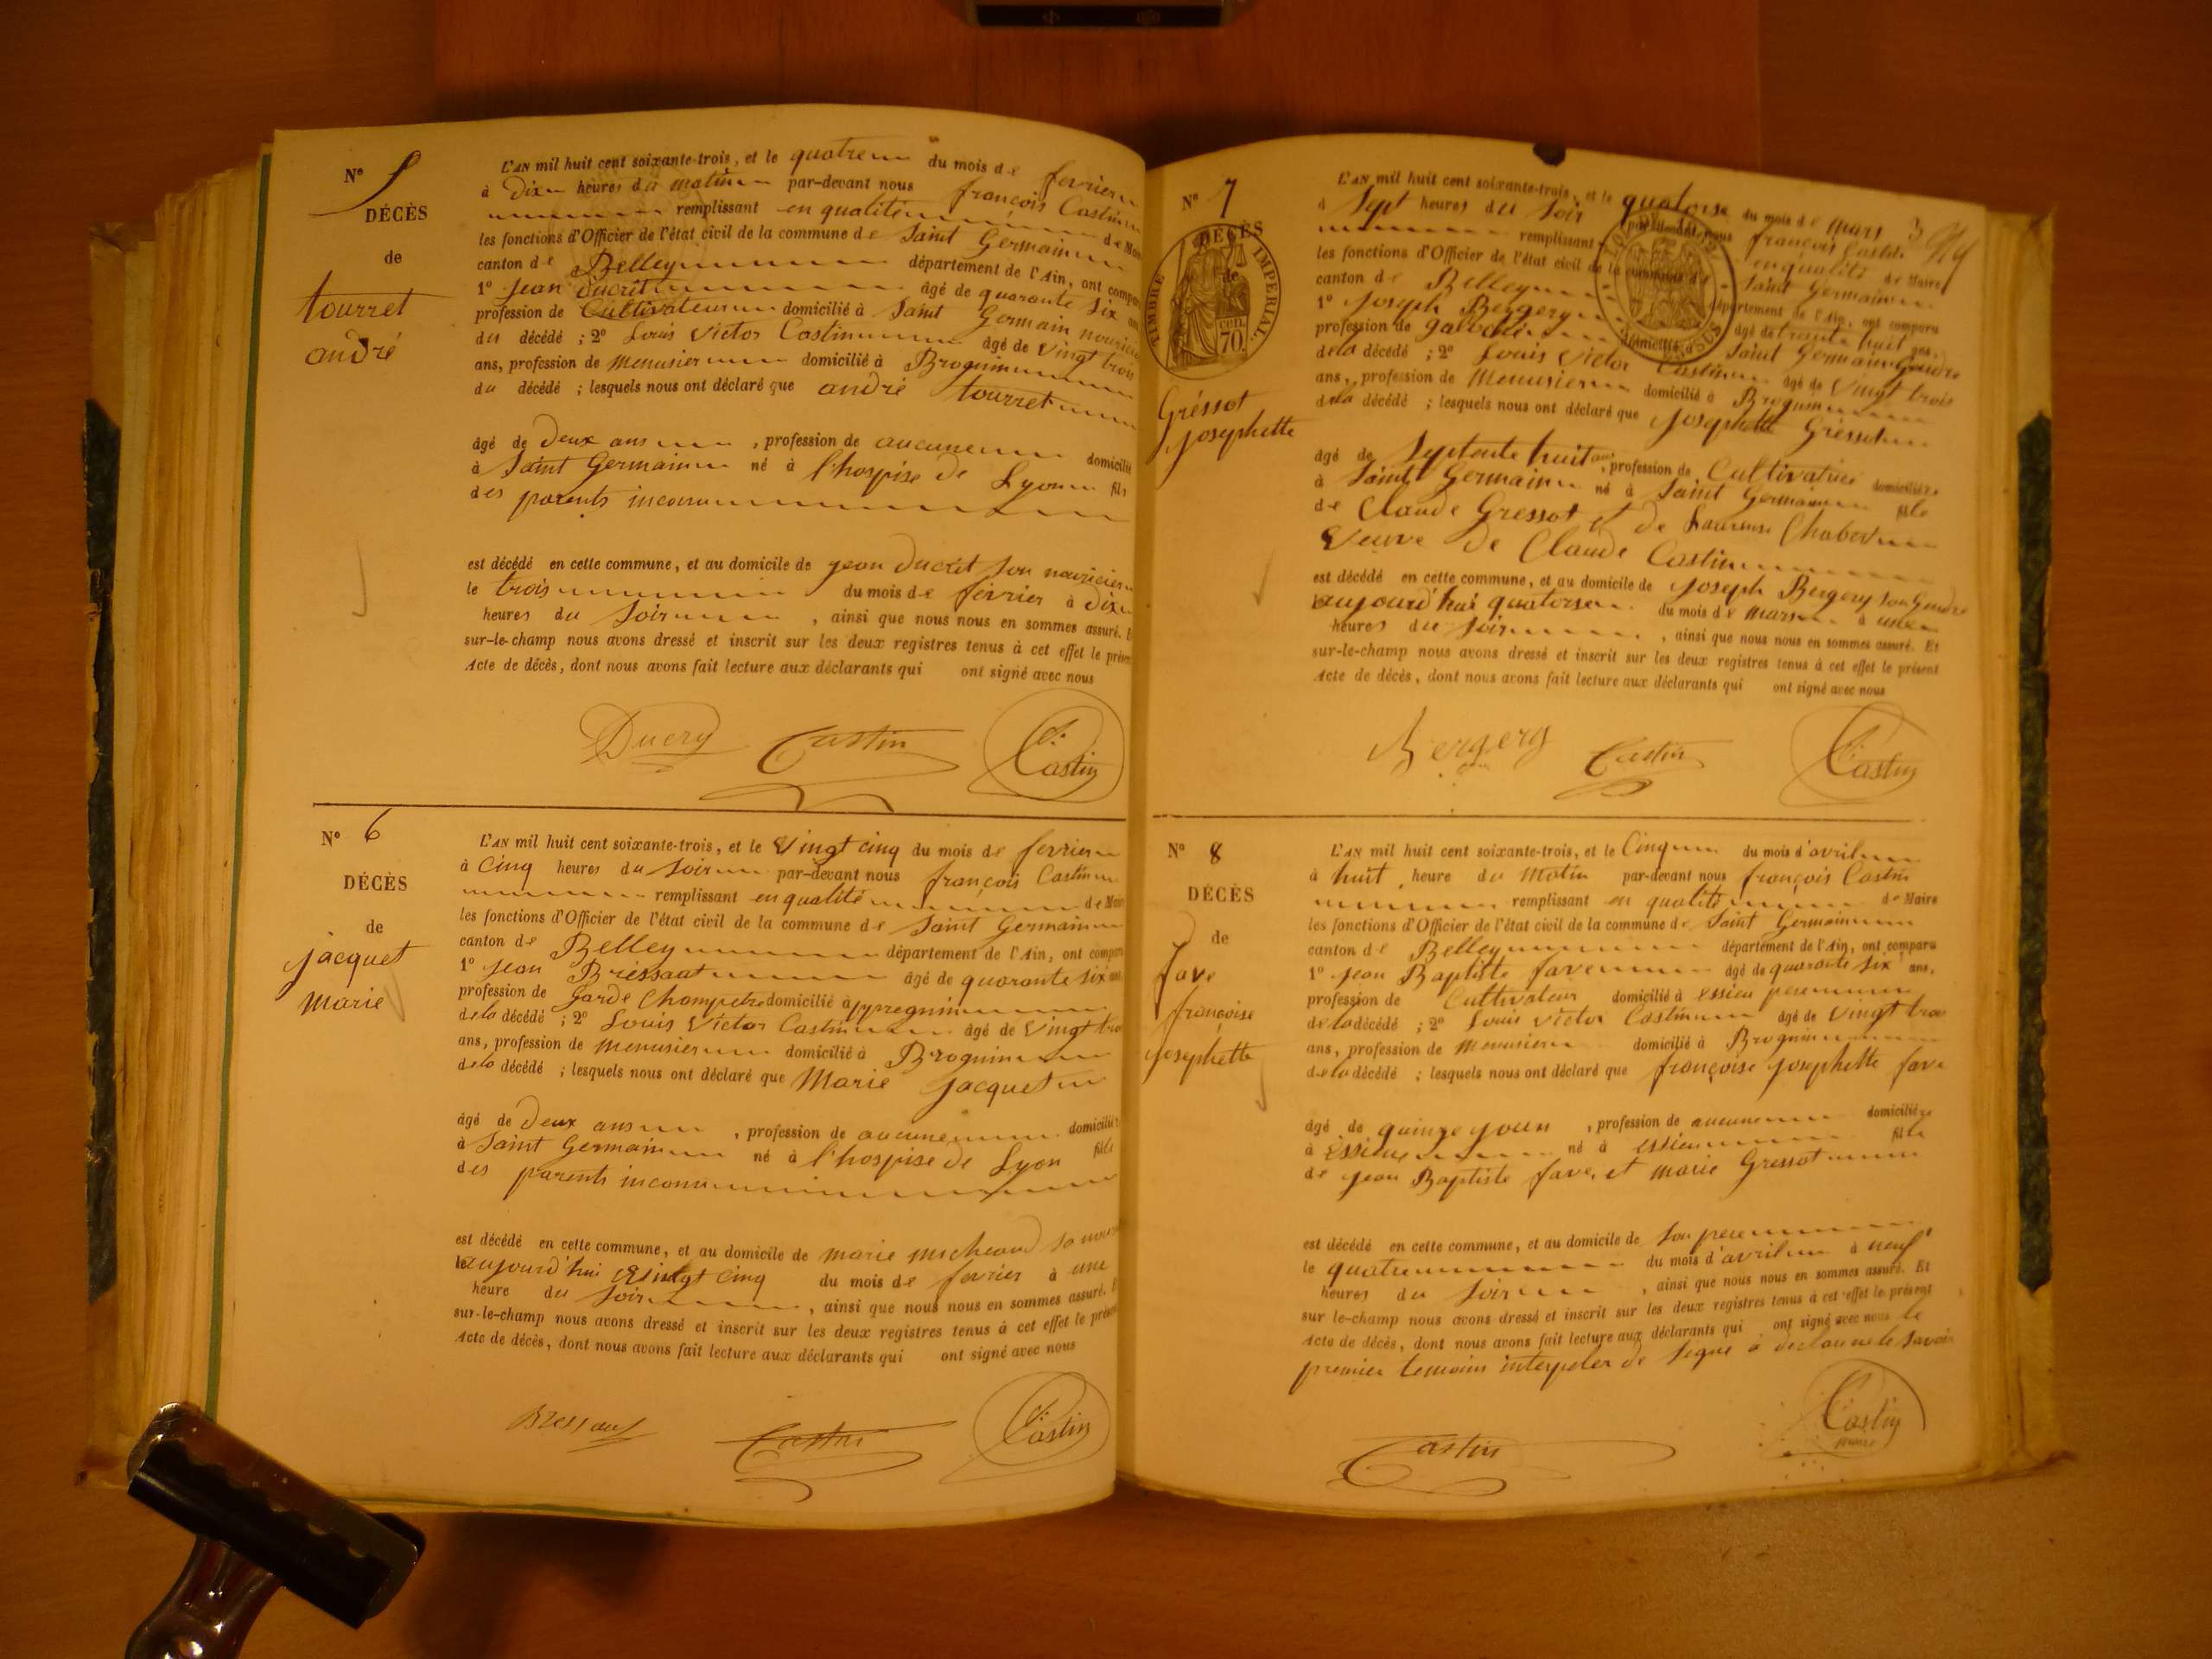 N° 5
DÉCÈS
de
tourret
andré
L'AN mil huit cent soixante-trois, et le quatre du mois de fevrier
à Dix heures du matin par-devant nous françois Castin
remplissant en qualité de Maire
les fonctions d'Officier de l'état civil de la commune de Saint Germain
canton de Belley département de l'Ain, ont comparu
1° Jean Ducrit âgé de quarante six ans
profession de Cultivateur domicilié à Saint Germain nouricier
du décédé ; 2° Louis Victor Castin âgé de vingt trois
ans, profession de Menusier domicilié à Brognin
du décédé ; lesquels nous ont déclaré que andré tourret
âgé de Deux ans , profession de aucune domicilié
à Saint Germain né à l'hospise de Lyon fils
des parents inconu
est décédé en cette commune, et au domicile de jean Ducrit son nouricier
le trois du mois de février à dix
heures du soir , ainsi que nous nous en sommes assuré. Et
sur-le-champ nous avons dressé et inscrit sur les deux registres tenus à cet effet le présent
Acte de décès, dont nous avons fait lecture aux déclarants qui ont signé avec nous
Ducry Castin Castin
N° 6
DÉCÈS
de
jacquet
Marie
L'AN mil huit cent soixante-trois, et le Vingt cinq du mois de fevrier
à Cinq heures du Soir par-devant nous françois Castin
remplissant en qualité de Maire
les fonctions d'Officier de l'état civil de la commune de Saint Germain
canton de Belley département de l'Ain, ont comparu
1° Jean Bressaat âgé de quarante six ans
profession de Garde Champetre domicilié à ppregnin
de la décédé ; 2° Louis Victor Castin âgé de Vingt trois
ans, profession de menusier domicilié à Brognin
de la décédé ; lesquels nous ont déclaré que Marie jacquet
âgé de Deux ans , profession de aucune domiciliée
à Saint Germain né à l'hospise de Lyon fille
des parents inconu
est décédé en cette commune, et au domicile de marie micheaud sa
le aujourd'hui Vingt cinq du mois de fevrier à une
heure du Soir , ainsi que nous nous en sommes assuré. Et
sur-le-champ nous avons dressé et inscrit sur les deux registres tenus à cet effet le présent
Acte de décès, dont nous avons fait lecture aux déclarants qui ont signé avec nous
Bressaut Castin Castin
N° 7
DÉCÈS
de
TIMBRE IMPERIAL
70 cen.
Gréssot
josephette
L'AN mil huit cent soixante-trois, et le quatorse du mois de Mars
à Sept heures du Soir par-devant nous françois Castin
remplissant en qualité de Maire
les fonctions d'Officier de l'état civil de la commune de Saint Germain
canton de Belley département de l'Ain, ont comparu
1° Joseph Bergery âgé de trante huit ans,
profession de domicilié à Saint Germain Gendre
de la décédé ; 2° Louis Victor Castin âgé de Vingt trois
ans, profession de Menusier domicilié à Brognin
de la décédé ; lesquels nous ont déclaré que Josephette Gressot
âgé de Septente huit ans , profession de Cultivatrice domiciliée
à Saint Germain né à Saint Germain fille
de Claude Gressot et de Laurense Chabert
Veuve de Claude Castin
est décédé en cette commune, et au domicile de Joseph Bergery son Gendre
aujourd'hui quatorse du mois de Mars à une
heures du Soir , ainsi que nous nous en sommes assuré. Et
sur-le-champ nous avons dressé et inscrit sur les deux registres tenus à cet effet le présent
Acte de décès, dont nous avons fait lecture aux déclarants qui ont signé avec nous
Bergery Castin Castin
N° 8
DÉCÈS
de
fave
françoise
josephette
L'AN mil huit cent soixante-trois, et le Cinq du mois d'avril
à huit heure du Matin par-devant nous françois Castin
remplissant en qualité de Maire
les fonctions d'Officier de l'état civil de la commune de Saint Germain
canton de Belley département de l'Ain, ont comparu
1° Jean Baptiste fave âgé de quarante six ans,
profession de Cultivateur domicilié à essieu pere
de la décédé ; 2° Louis Victor Castin âgé de Vingt trois
ans, profession de Menusier domicilié à Brognin
de la décédé ; lesquels nous ont déclaré que françoise josephette fave
âgé de quinze jours , profession de aucune domiciliée
à Essieu né à essieu fille
de jean Baptiste fave, et marie Gressot
est décédé en cette commune, et au domicile de Son pere
le quatre du mois d'avril à neuf
heures du Soir , ainsi que nous nous en sommes assuré. Et
sur le-champ nous avons dressé et inscrit sur les deux registres tenus à cet effet le présent
Acte de décès, dont nous avons fait lecture aux déclarants qui ont signé avec nous le
premier temoins interpeler de Signe à declaré ne le Savoir
Castin Castin
maire